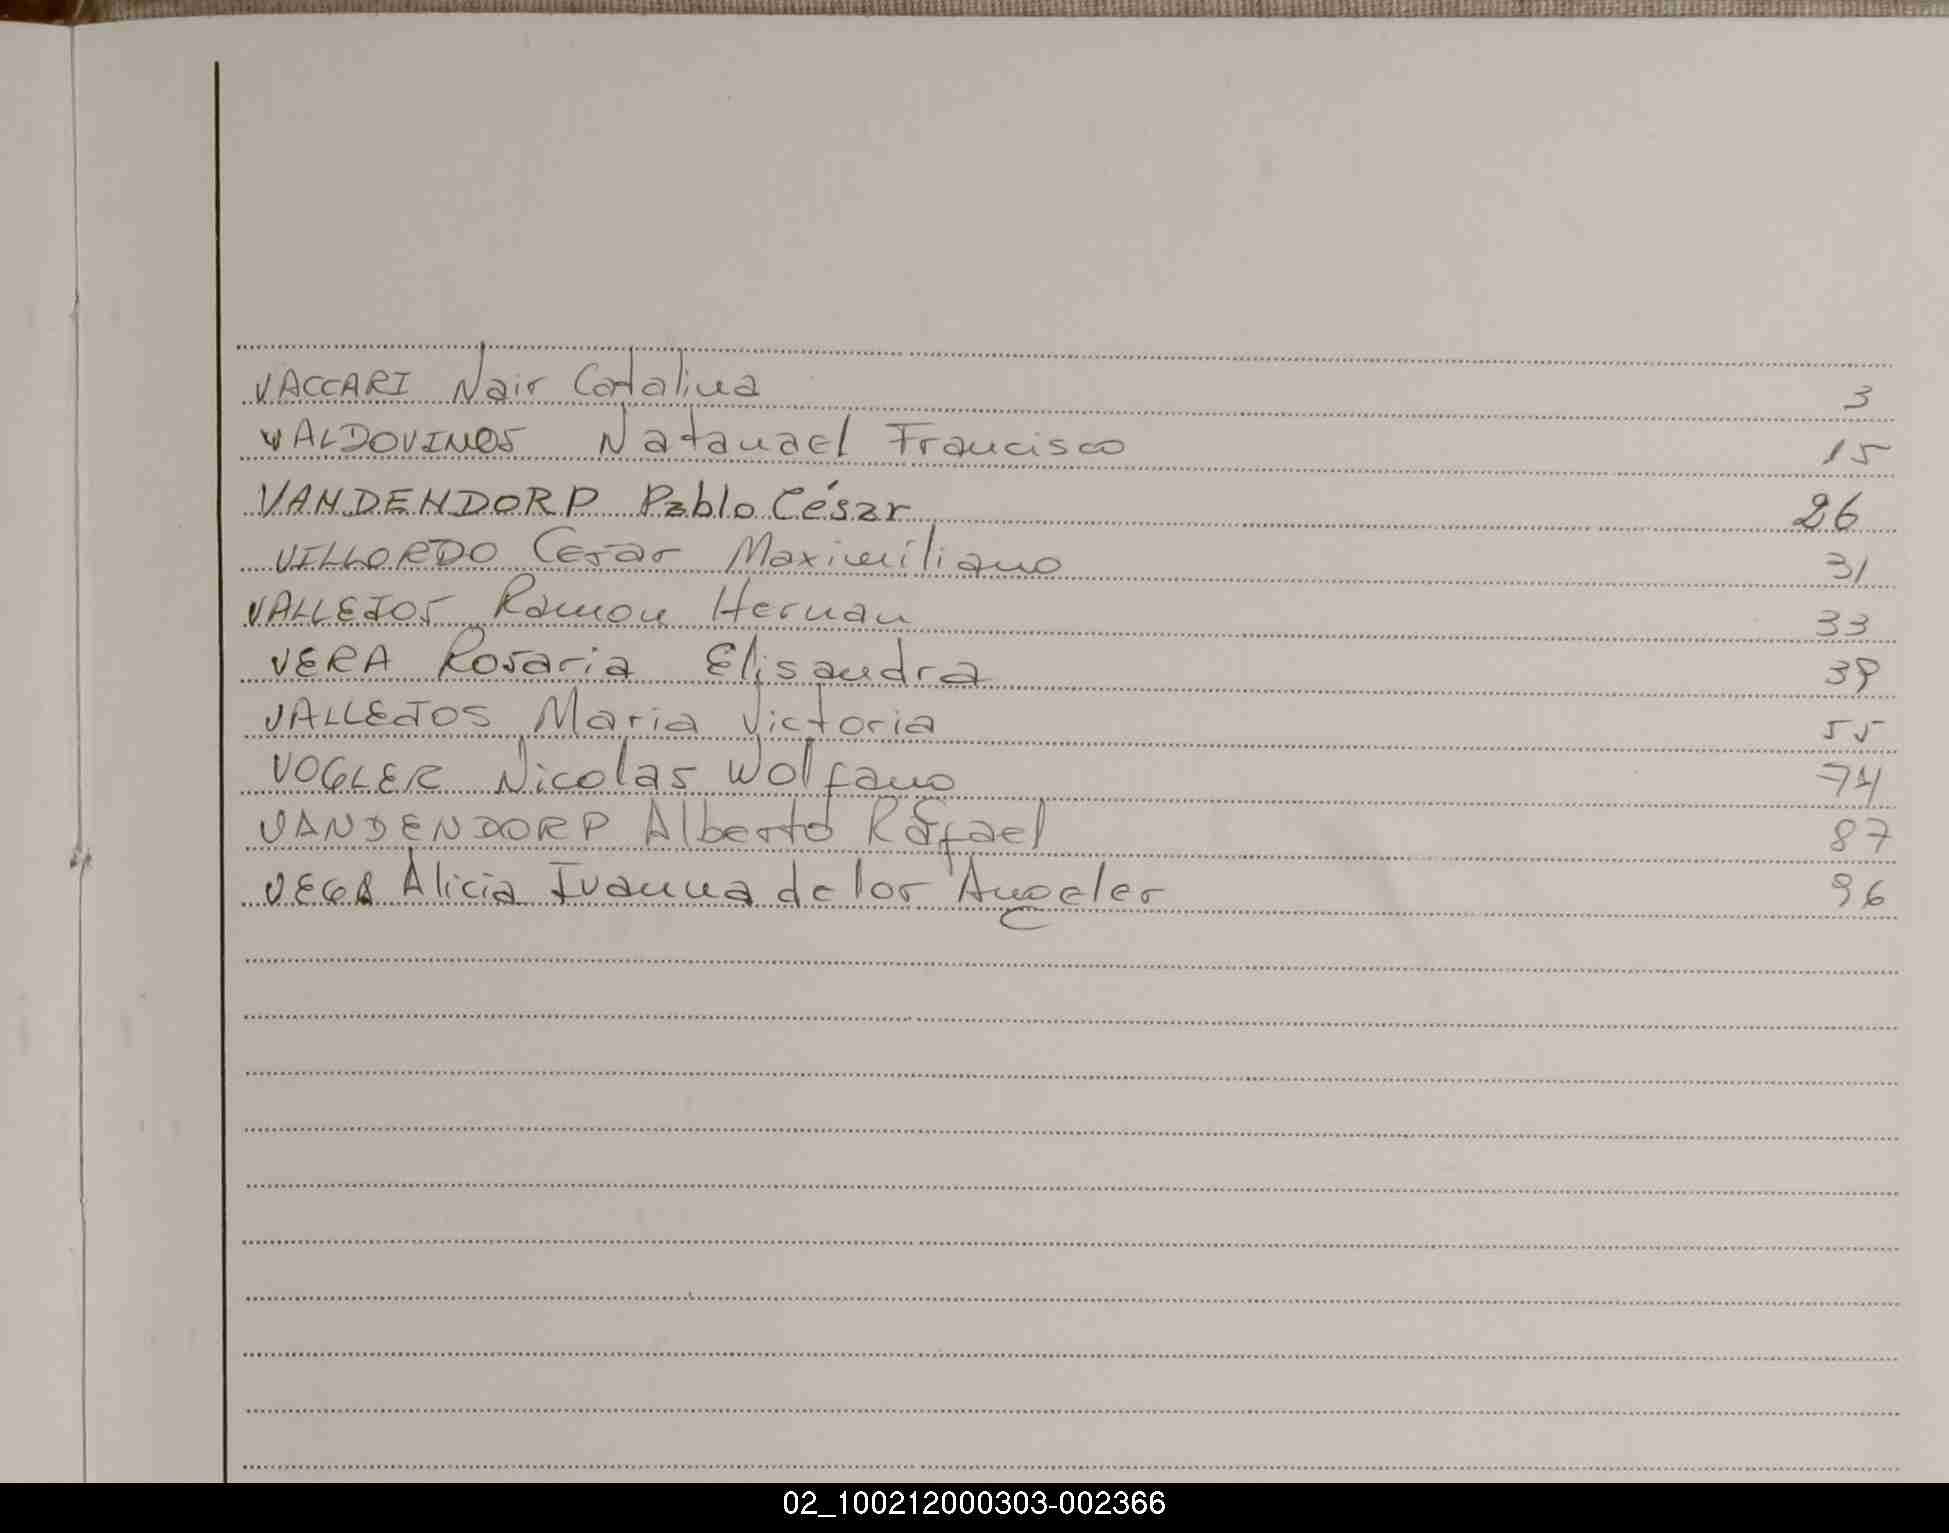 VACCARI Nair Catalina 3
VALDOVINOS Natanael Francisco 15
VANDENDORP Pablo César 26
VILLORDO Cesar Maximiliano 31
VALLEJOS Ramon Hernan 33
VERA Rosaria Elisandra 39
VALLEJOS Maria Victoria 55
VOGLER Nicolas Wolfano 74
VANDENDORP Alberto Rafael 87
VEGA Alicia Ivanna de los Angeles 96
02_100212000303-002366